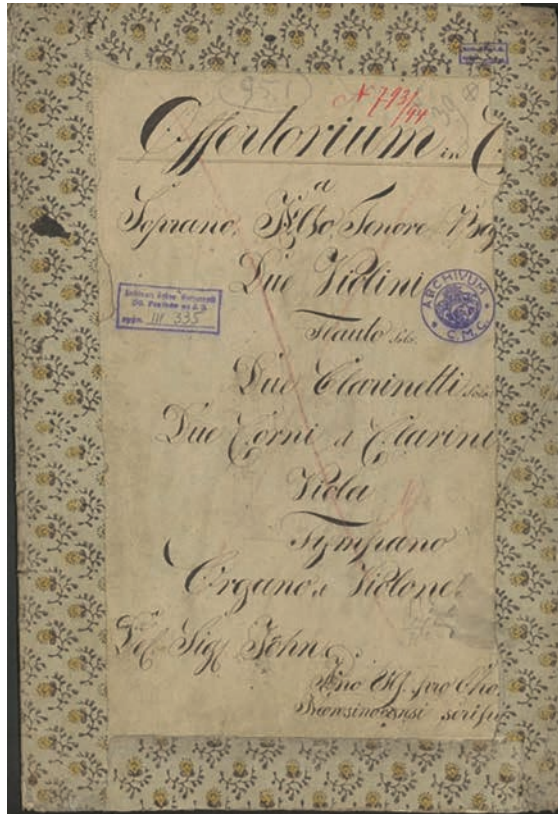 95.1
N 793/94
39
Offertorium in C
a
Soprano, Alto Tenore Ba
Due Violini
Flauto Solo.
Due Clarinetti Solo
Due Corni et Clarini
Viola
Tympano
Organo et Violone.
Del Sig. Zöhn
pro Cho
III 335
ARCHIVUM
C.M.C.